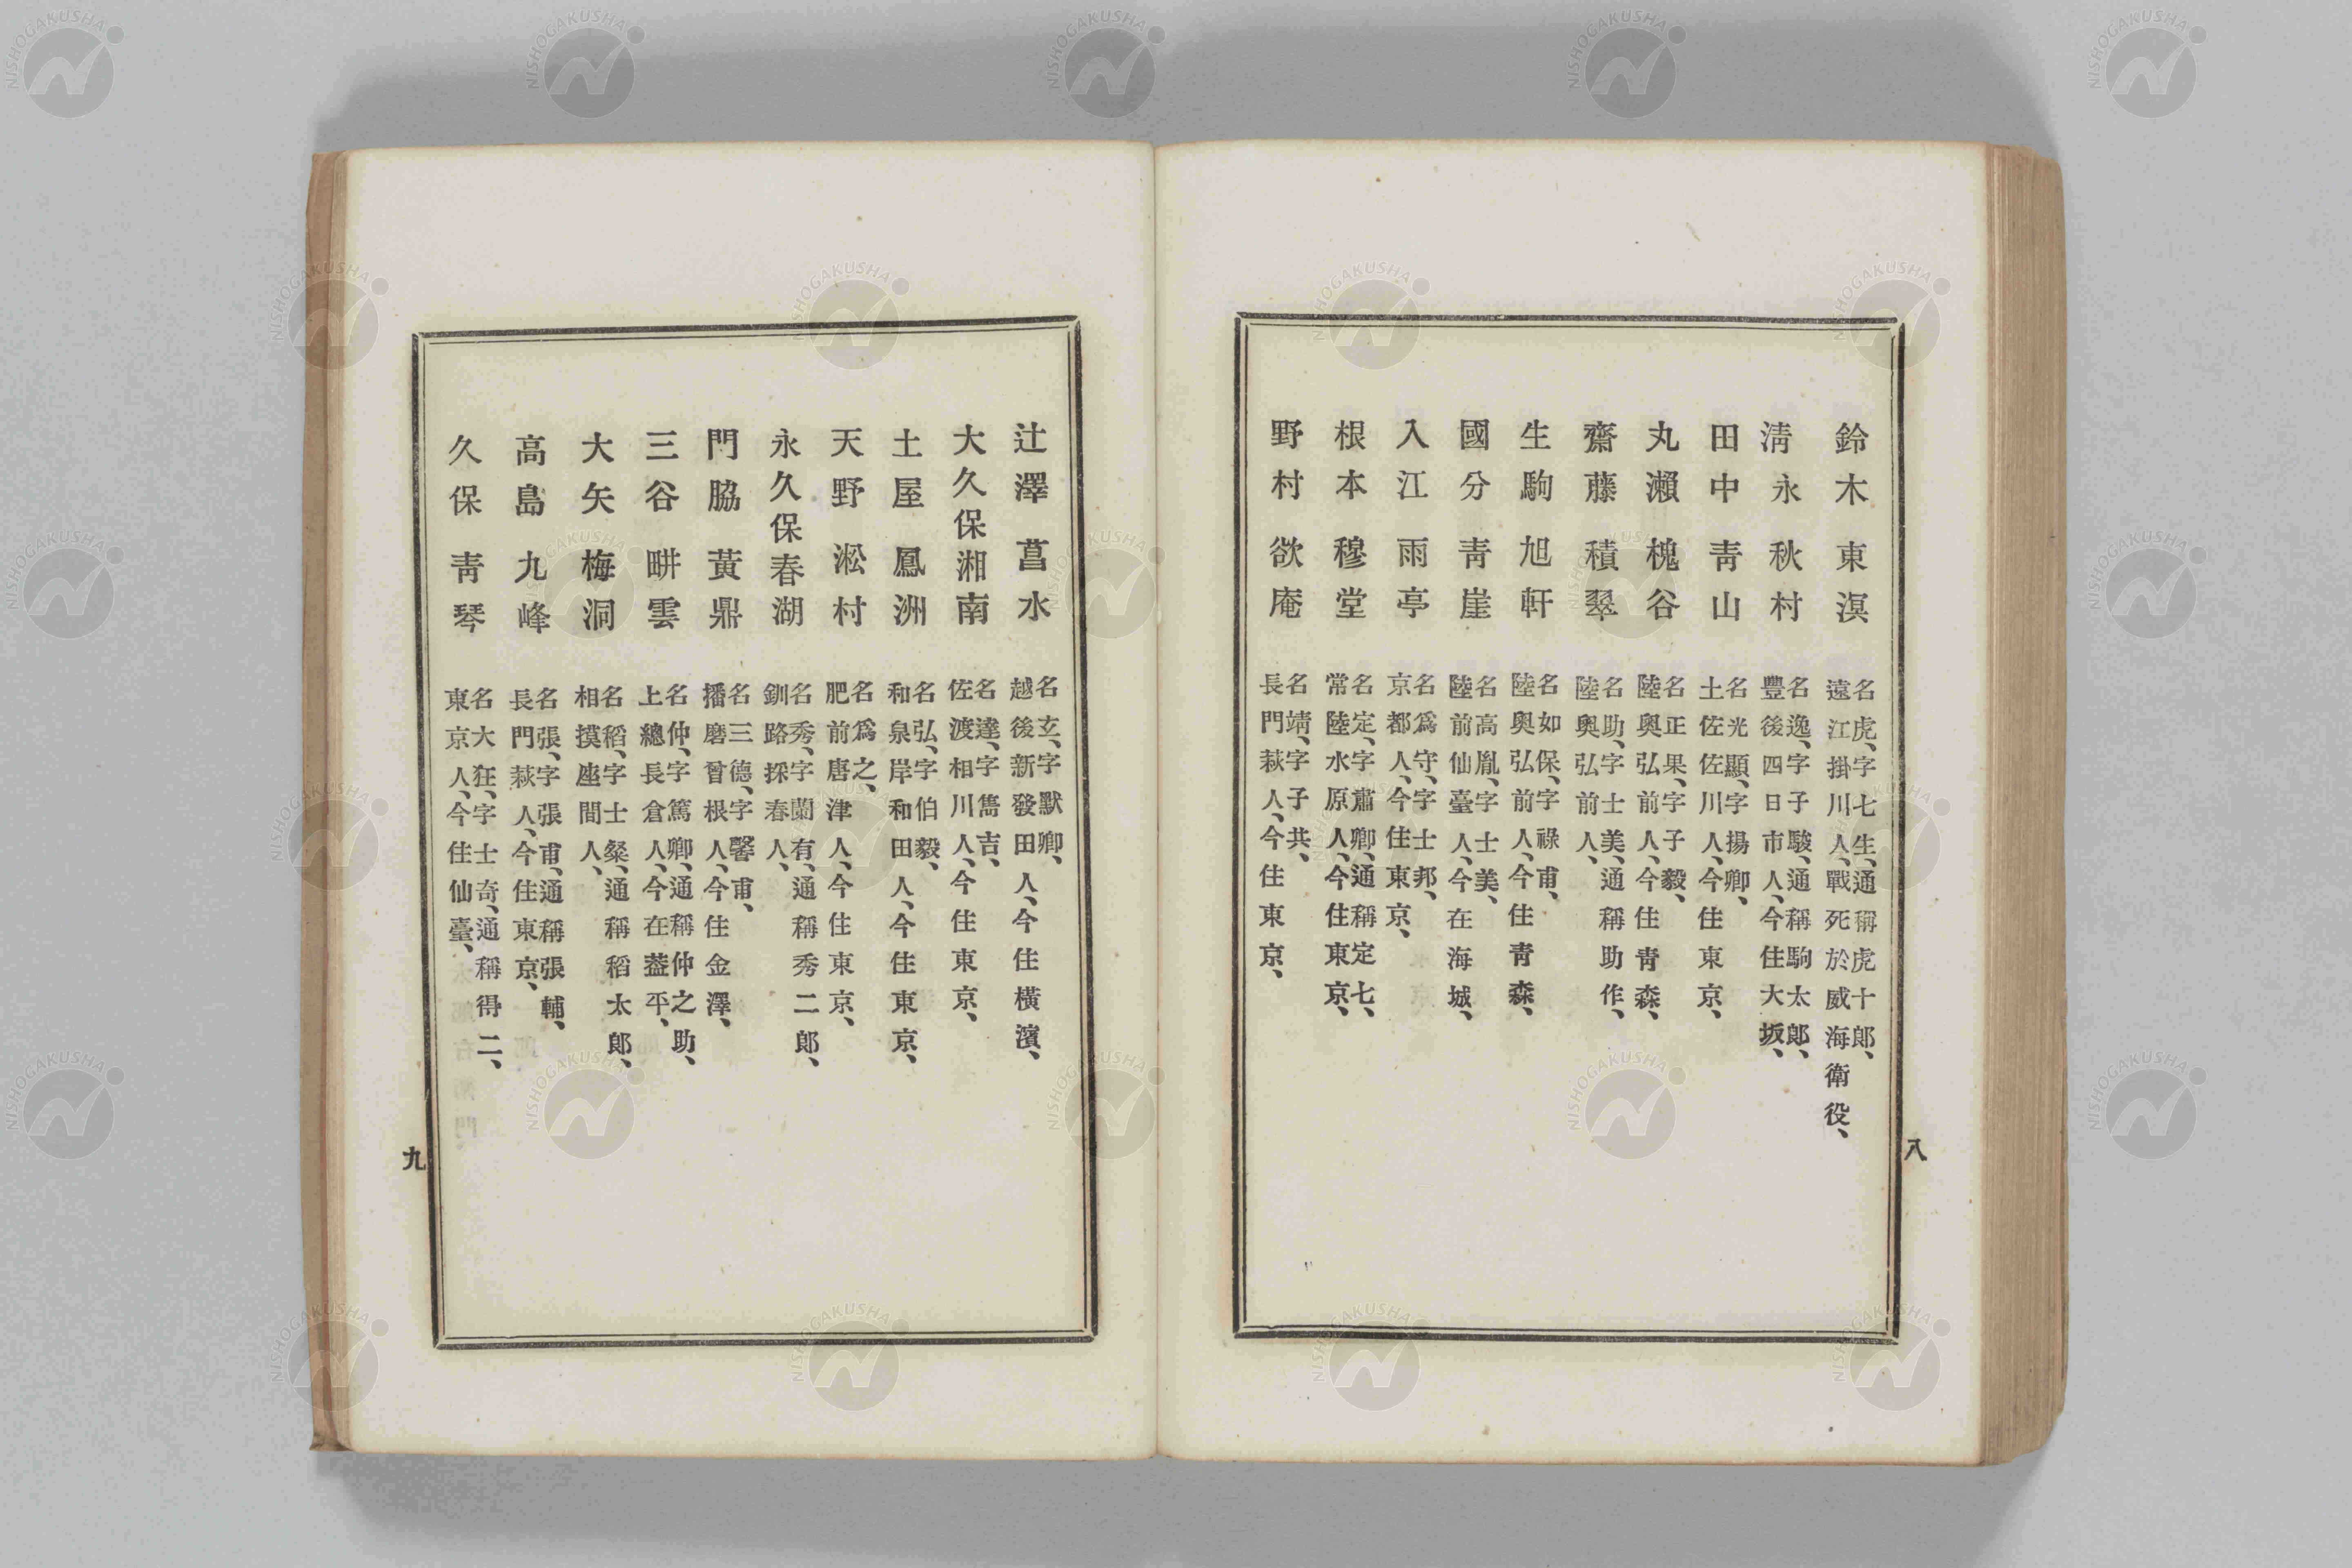 鈴木東溟
名虎、字七生、通稱虎十郎、
遠江掛川人、戰死於威海衛役、
淸永秋村
名逸、字子駿、通稱駒太郎、
豐後四日市人、今住大坂、
田中靑山
名光顯、字揚卿、
土佐佐川人、今住東京、
丸瀨槐谷
名正果、字子毅、
陸奧弘前人、今住靑森、
齋藤積翠
名助、字士美、通稱助作、
陸奧弘前人、
生駒旭軒
名如保、字祿甫、
陸奧弘前人、今住靑森、
國分靑崖
名高胤、字士美、
陸前仙臺人、今在海城、
入江雨亭
名爲守、字士邦、
京都人、今住東京、
根本穆堂
名定、字肅卿、通稱定七、
常陸水原人、今住東京、
野村欲庵
名靖、字子共、
長門萩人、今住東京、
八
辻澤菖水
名玄、字默卿、
越後新發田人、今住橫濱、
大久保湘南
名達、字雋吉、
佐渡相川人、今住東京、
土屋鳳洲
名弘、字伯毅、
和泉岸和田人、今住東京、
天野淞村
名爲之、
肥前唐津人、今住東京、
永久保春湖
名秀、字蘭有、通稱秀二郎、
釧路採春人、
門脇黃鼎
名三德、字馨甫、
播磨曾根人、今住金澤、
三谷畊雲
名仲、字篤卿、通稱仲之助、
上總長倉人、今在葢平、
大矢梅洞
名稻、字士粲、通稱稻太郎、
相摸座間人、
高島九峰
名張、字張甫、通稱張輔、
長門萩人、今住東京、
久保靑琴
名大狂、字士奇、通稱得二、
東京人、今住仙臺、
九
NISHOGAKUSHA